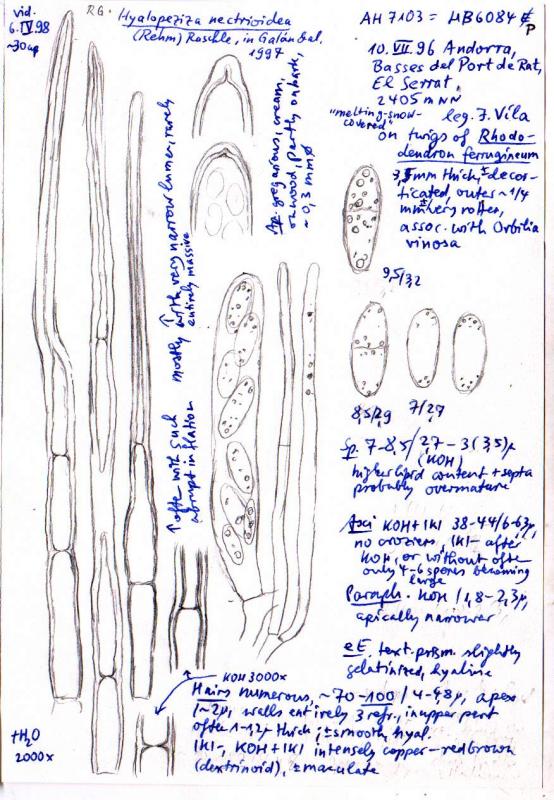 vid.
6. IV 98
~30 ap
RG. Hyalopeziza nectrioidea
(Rehm) Raschle, in Galán & al.
1997
AH 7103 = HB 6084
10. VII. 96 Andorra,
Basses del Port de Rat,
El Serrat,
2405 m NN
"melting-snow-
covered"
leg. J. Vila
on twigs of Rhodo-
dendron ferrugineum
mm thick, ± decor-
ticated, outer ~ 1/4
mm very rotten,
assoc. with Orbilia
vinosa
Ap. gregarious, cream,
on wood, partly on bark,
~ 0,3 mm ø
↑ with very narrow lumen, rarely
mostly entirely massive
↑ often with such
abrupt inflation
9,5/3,2
8,5/2,9
7/2,7
Sp. 7-8,5/2,7-3(3,5)µ
(KOH)
higher lipid content + septa
probably overmature
Asci KOH+IKI 38-44/6-6,3µ,
no croziers, IKI- after
KOH, or without often
only 4-6 spores becoming
large
Paraph. KOH /1,8-2,3µ,
apically narrower
eE. text. prism. slightly
gelatinized, hyaline
KOH 3000x
Hairs numerous, ~70-100/4-4,8µ, apex
1-2µ, walls entirely refr., in upper part
often 1-1,2µ thick, ± smooth, hyal.
IKI-, KOH+IKI intensely copper-redbrown
(dextrinoid), ± maculate
+H2O
2000x